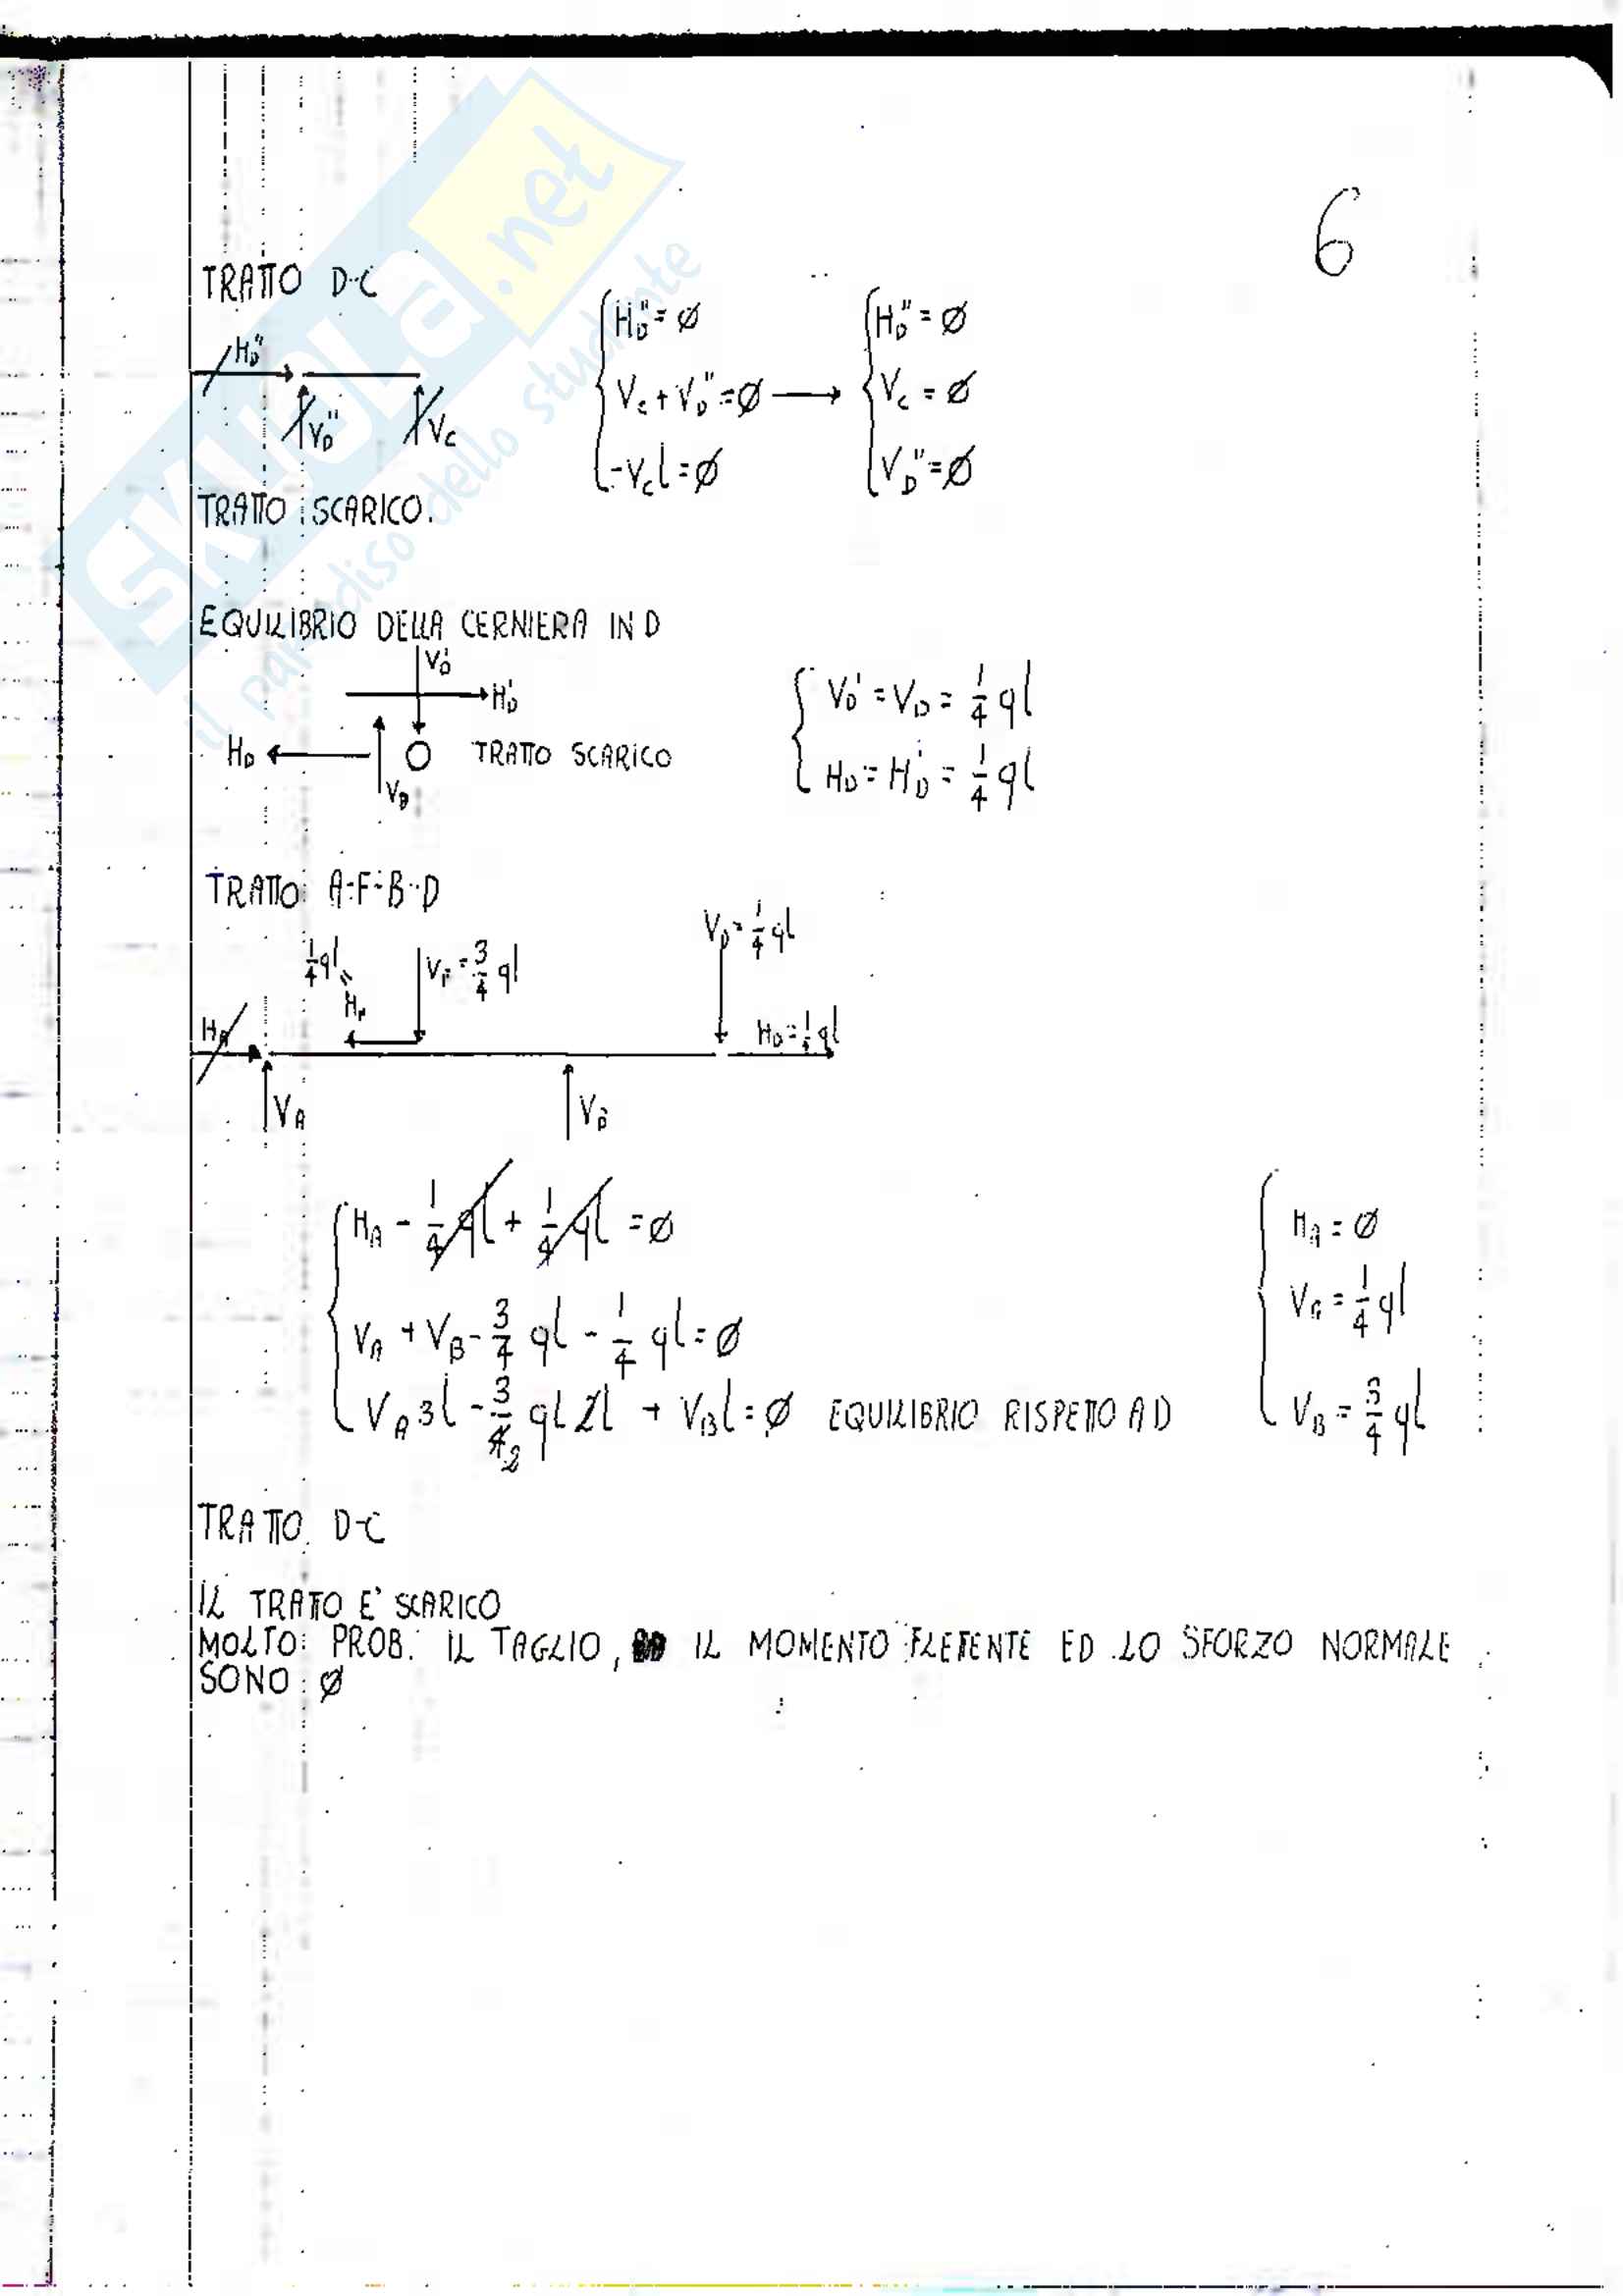 6
TRATTO D-C
H_D''
V_D'' V_C
{ H_D'' = ∅
V_C + V_D'' = ∅ →
-V_C l = ∅
{ H_D'' = ∅
V_C = ∅
V_D'' = ∅
TRATTO SCARICO.
EQUILIBRIO DELLA CERNIERA IN D
V_D'
H_D'
H_D TRATTO SCARICO
V_D
{ V_D' = V_D = 1/4 ql
H_D = H_D' = 1/4 ql
TRATTO A-F-B-D
1/4 ql = H_F
V_F = 3/4 ql
V_D = 1/4 ql
H_A
H_D = 1/4 ql
V_A V_B
{ H_A - 1/4 ql + 1/4 ql = ∅
V_A + V_B - 3/4 ql - 1/4 ql = ∅
V_A 3l - 3/4 2 ql 2l + V_B l = ∅ EQUILIBRIO RISPETTO A D
{ H_A = ∅
V_A = 1/4 ql
V_B = 3/4 ql
TRATTO D-C
IL TRATTO E' SCARICO
MOLTO PROB. IL TAGLIO, IL MOMENTO FLETTENTE ED LO SFORZO NORMALE
SONO ∅
SKUOLA.net
il paradiso dello studente